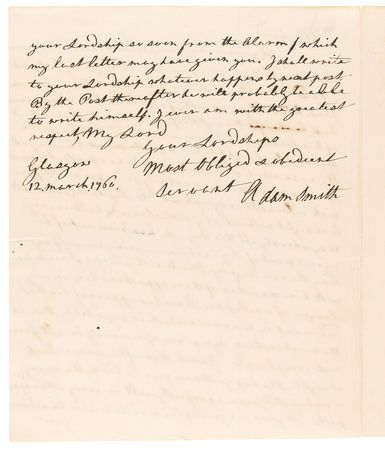 your Lordship so soon from the Alarm which
my last letter may have given you. I shall write
to your Lordship whatever happens by next post
By the Post thereafter he will probably be able
to write himself. I ever am with the greatest
respect, My Lord
Your Lordships
Most Obliged & obedient
Servant Adam Smith
Glasgow
12. march. 1760.